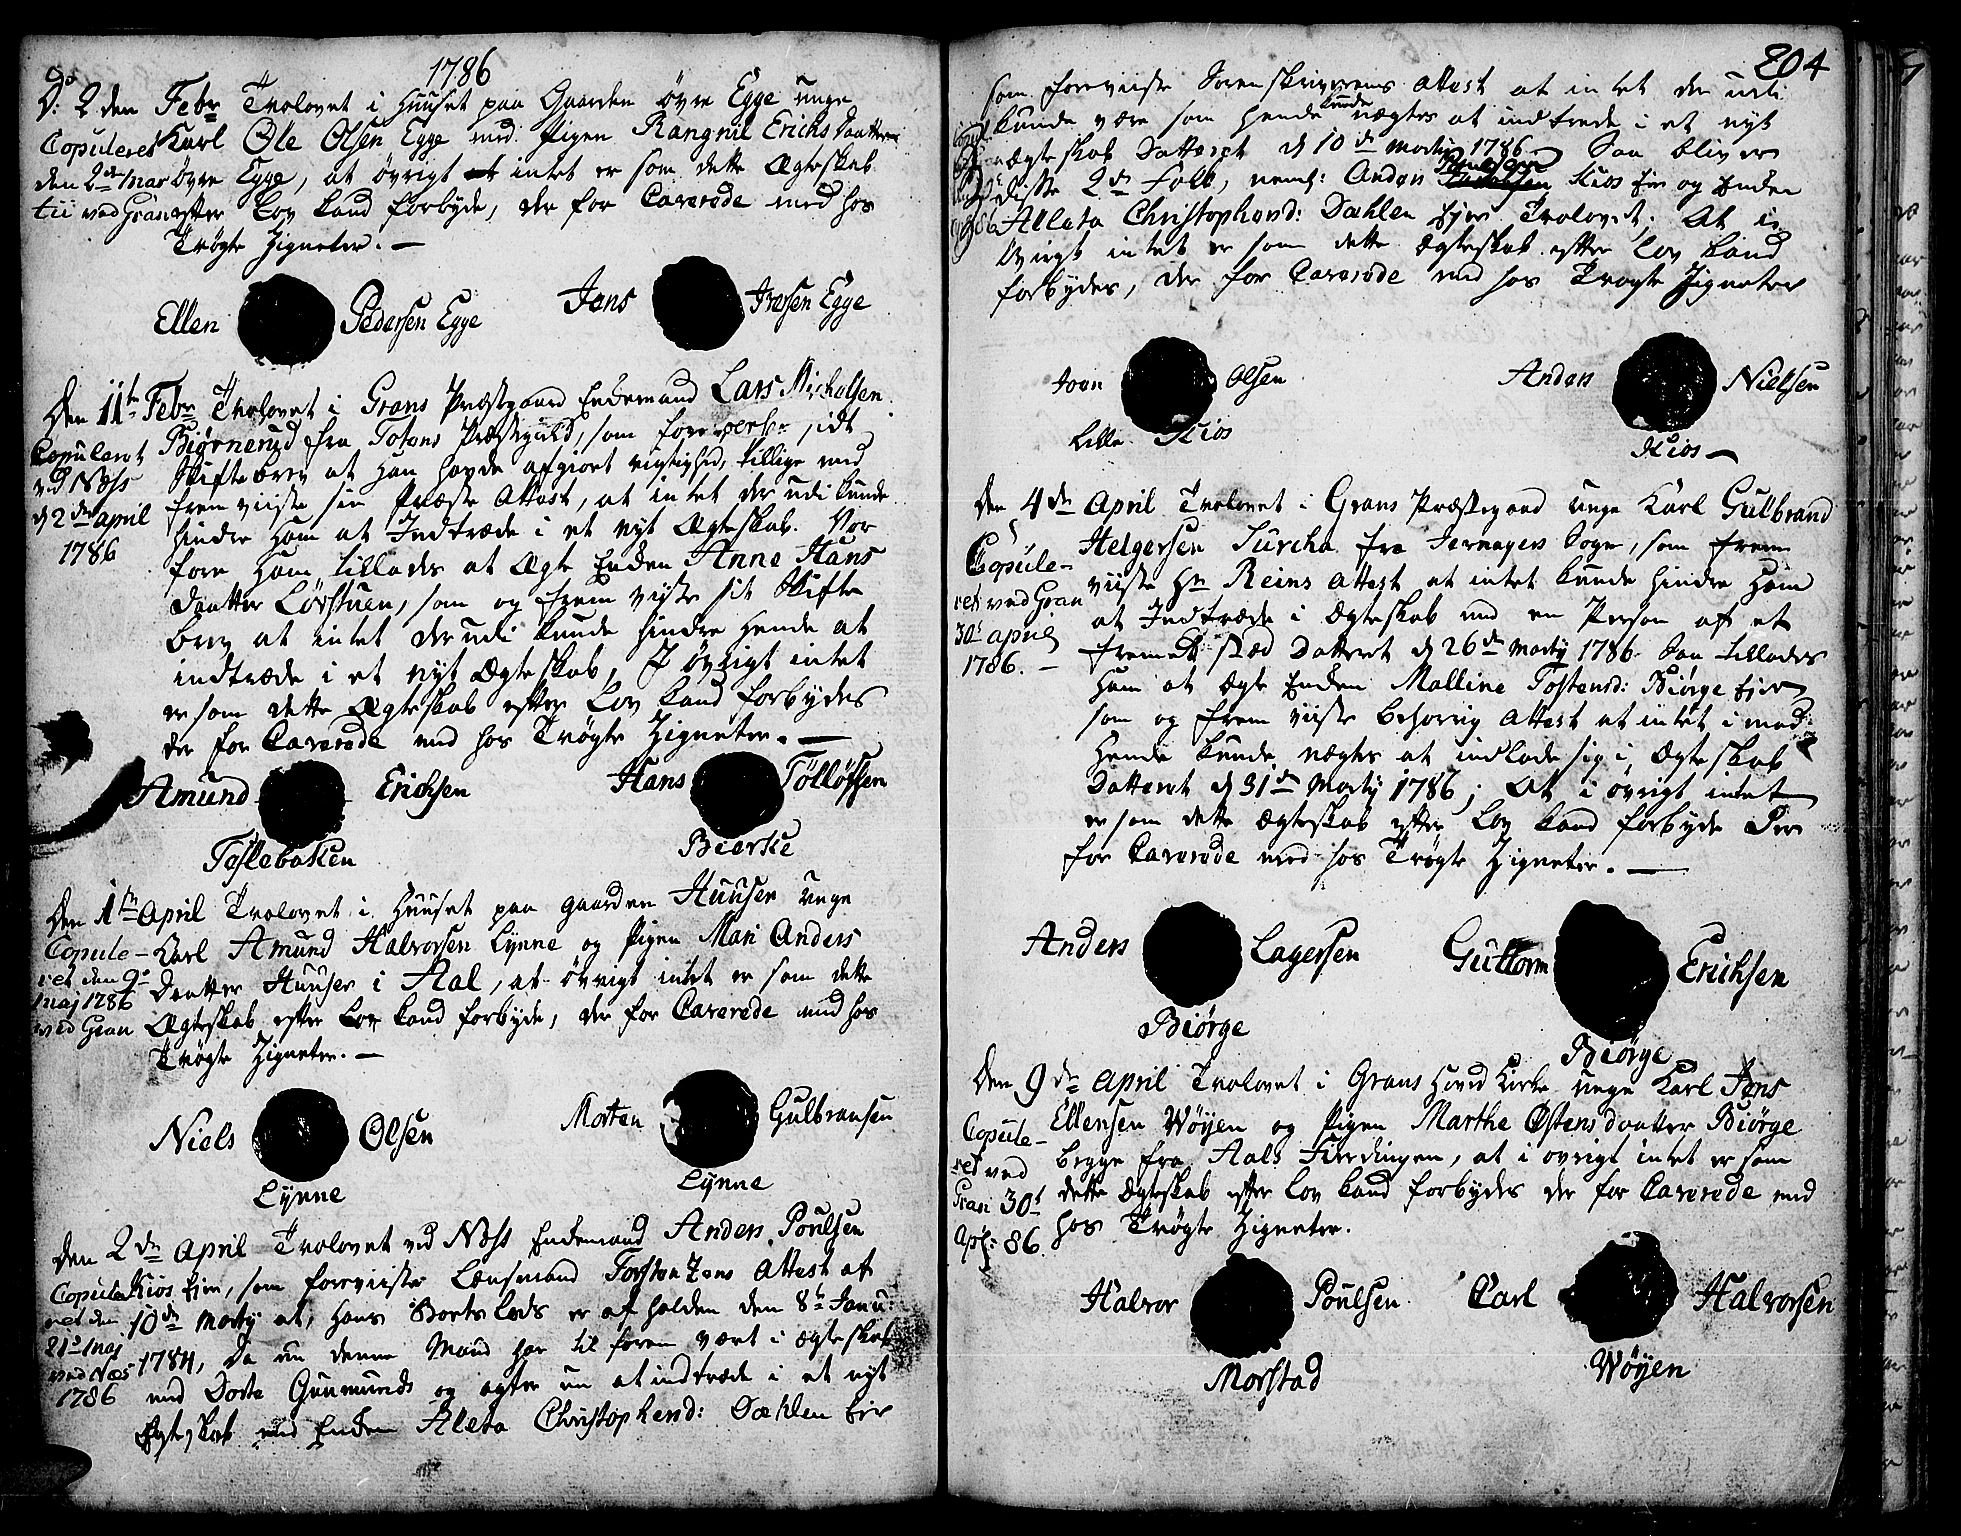 1786
D: 2 den Febr Trolovet i Huuset paa Gaarden øvre Egge unge
Karl Ole Olsen Egge med Pigen Rangnil Erichs Daatter
øvre Egge, at øvrigt intet er som dette Ægteskab
efter Lov kand forbyde, der for Caverede med hos
Trøgte Zigneter. —
Copuleret
den 2de Mar
tii ved Gran
Ellen Pedersen Egge
Jens Iversen Egge
Den 11te Febr Trolovet i Grans Præstegaard Enkemand Lars Nicholsen
Biørnerud fra Totens Præstegield, som foreviste sidt
Skiftebrev at han havde afgiort rigtighed, tillige med
fremviiste sin Præste Attest, at intet der udi kunde
hindre ham at Indtræde i et nyt Ægteskab. Nor
fore ham tillades at Ægte Enken Anne Hans
Daatter Lørstuen, som og frem viiste sit Skifte
brev at intet derudi kunde hindre hende at
indtræde i et nyt Ægteskab, I øvrigt intet
er som dette Ægteskab efter Lov kand forbydes
der for Caverede med hos Trøgte Zigneter. —
Copuleret
ved Næss
d 2den april
1786
Amund Erichsen
Toslebaken
Hans Tølløfsen
Bierke
Den 1te April Trolovet i Huuset paa gaarden Huuser unge
Karl Amund Halvorsen Lynne og Pigen Mari Anders
Daatter Huuser i Aal, at øvrigt intet er som dette
Ægteskab efter Lov kand forbyde, der for Caverede med hos
Trøgte Zigneter. —
Copule-
ret den 9de
Maj 1786
ved Gran
Niels Olsen
Lynne
Morten Gulbransen
Lynne
Den 2den April Trolovet ved Næss Enkemand Anders Poulsen
Kios Eier, som foreviiste Lænsmand Torsten Zens Attest af
10de Martij at, hans Boets Lods er af holden den 8de Janu:
1784, Da nu denne Mand har til foren vært i ægteskab
med Dorte Gunmunds og agter nu at indtræde i et nyt
Egteskab med Enken Aleta Christophersd: Dæhlen Eier
Copule
ret den
21de Maj
ved Næs
1786
204
som foreviiste Sorenskriverens Attest at intet der udi
kunde være som hende kunde nægtes at indtræde i et nyt
ægteskab Datteret d 10de Martij 1786. Saa bliver
disse 2de Folk, neml: Anders Poulsen Kios Eier og Enken
Alleta Christophersd: Dæhlen Eier Trolovet; At i
øvrigt intet er som dette Ægteskab efter Lov kand
forbydes, der for Caverede med hos Trøgte Zigneter
Joen Olsen
Lille Kios
Anders Nielsen
Kios —
Den 4de April Trolovet i Grans Præstegaard unge Karl Gulbrand
Helgersen Turcha fra Jevnagers Sogn, som frem
viiste Hr Reins attest at intet kunde hindre ham
at Indtræde i Ægteskab med en Person af et
fremet stæd Datteret d 26de Martij 1786. Saa tillades
ham at Ægte Enken Malline Tostensd: Biørge Eier
som og frem viiste behørig attest at intet i mod
hende kunde nægtes at indlade sig i Ægteskab
Datteret d 31de Martij 1786; At i øvrigt intet
er som dette Ægteskab efter Lov kand forbyde Der
for Caverede med hos Trøgte Zigneter. —
Copule-
ret ved Gran
30te april
1786. —
Anders Lagersen
Biørge
Guttorm Erichsen
Biørge
Den 9de April Trolovet i Grans Hoved Kirke unge Karl Jens
Ellensen Wøyen og Pigen Marthe Østensdaatter Biørge
begge fra Aals Fierdingen, at i øvrigt intet er som
dette Ægteskab efter Lov kand forbydes der for Caverede med
hos Trøgte Zigneter.
Copule-
ret ved
Gran 30te
Apl: 86.
Halvor Poulsen
Morstad
Carl Halvorsen
Wøyen